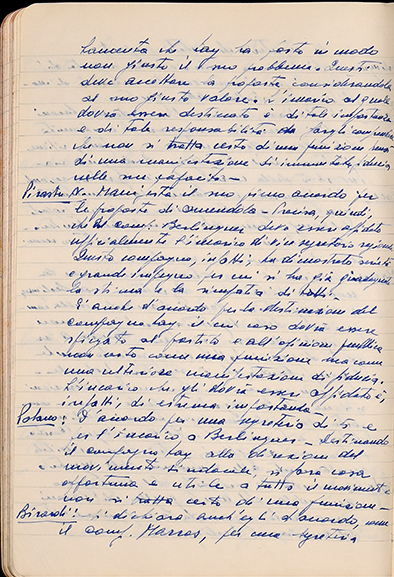 lamenta che Lay ha posto in modo
non giusto il suo problema. Questi
deve accettare la proposta considerandola
al suo giusto valore. L'incarico al quale
dovrà essere destinato è di tale importanza
e di tale responsabilità da fargli comprendere
che non si tratta certo di una punizione
di una manifestazione di immutata fiducia
nelle sue capacità -
Pirastu N. Manifesta il suo pieno accordo per
le proposte di Amendola - Precisa, quindi,
che al comp. Berlinguer deve esser affidato
ufficialmente l'incarico di vice segretario regionale
Questo compagno, infatti, ha dimostrato serietà
e grande impegno per cui si ha già guadagnato
la stima e la simpatia di tutti.
È anche d'accordo per la destinazione del
compagno Lay il cui caso dovrà essere
spiegato al partito e all'opinione pubblica
non certo come una punizione ma come
una ulteriore manifestazione di fiducia.
L'incarico che gli dovrà esser affidato è,
infatti, di estrema importanza
Polano: D'accordo per una segreteria di 5 e
l'incarico a Berlinguer - Destinando
il compagno Lay alla direzione del
movimento sindacale si farà cosa
opportuna e utile a tutto il movimento
non si tratta certo di una punizione -
Birardi: si dichiara anch'egli d'accordo, come
il comp. Marras, per una segreteria